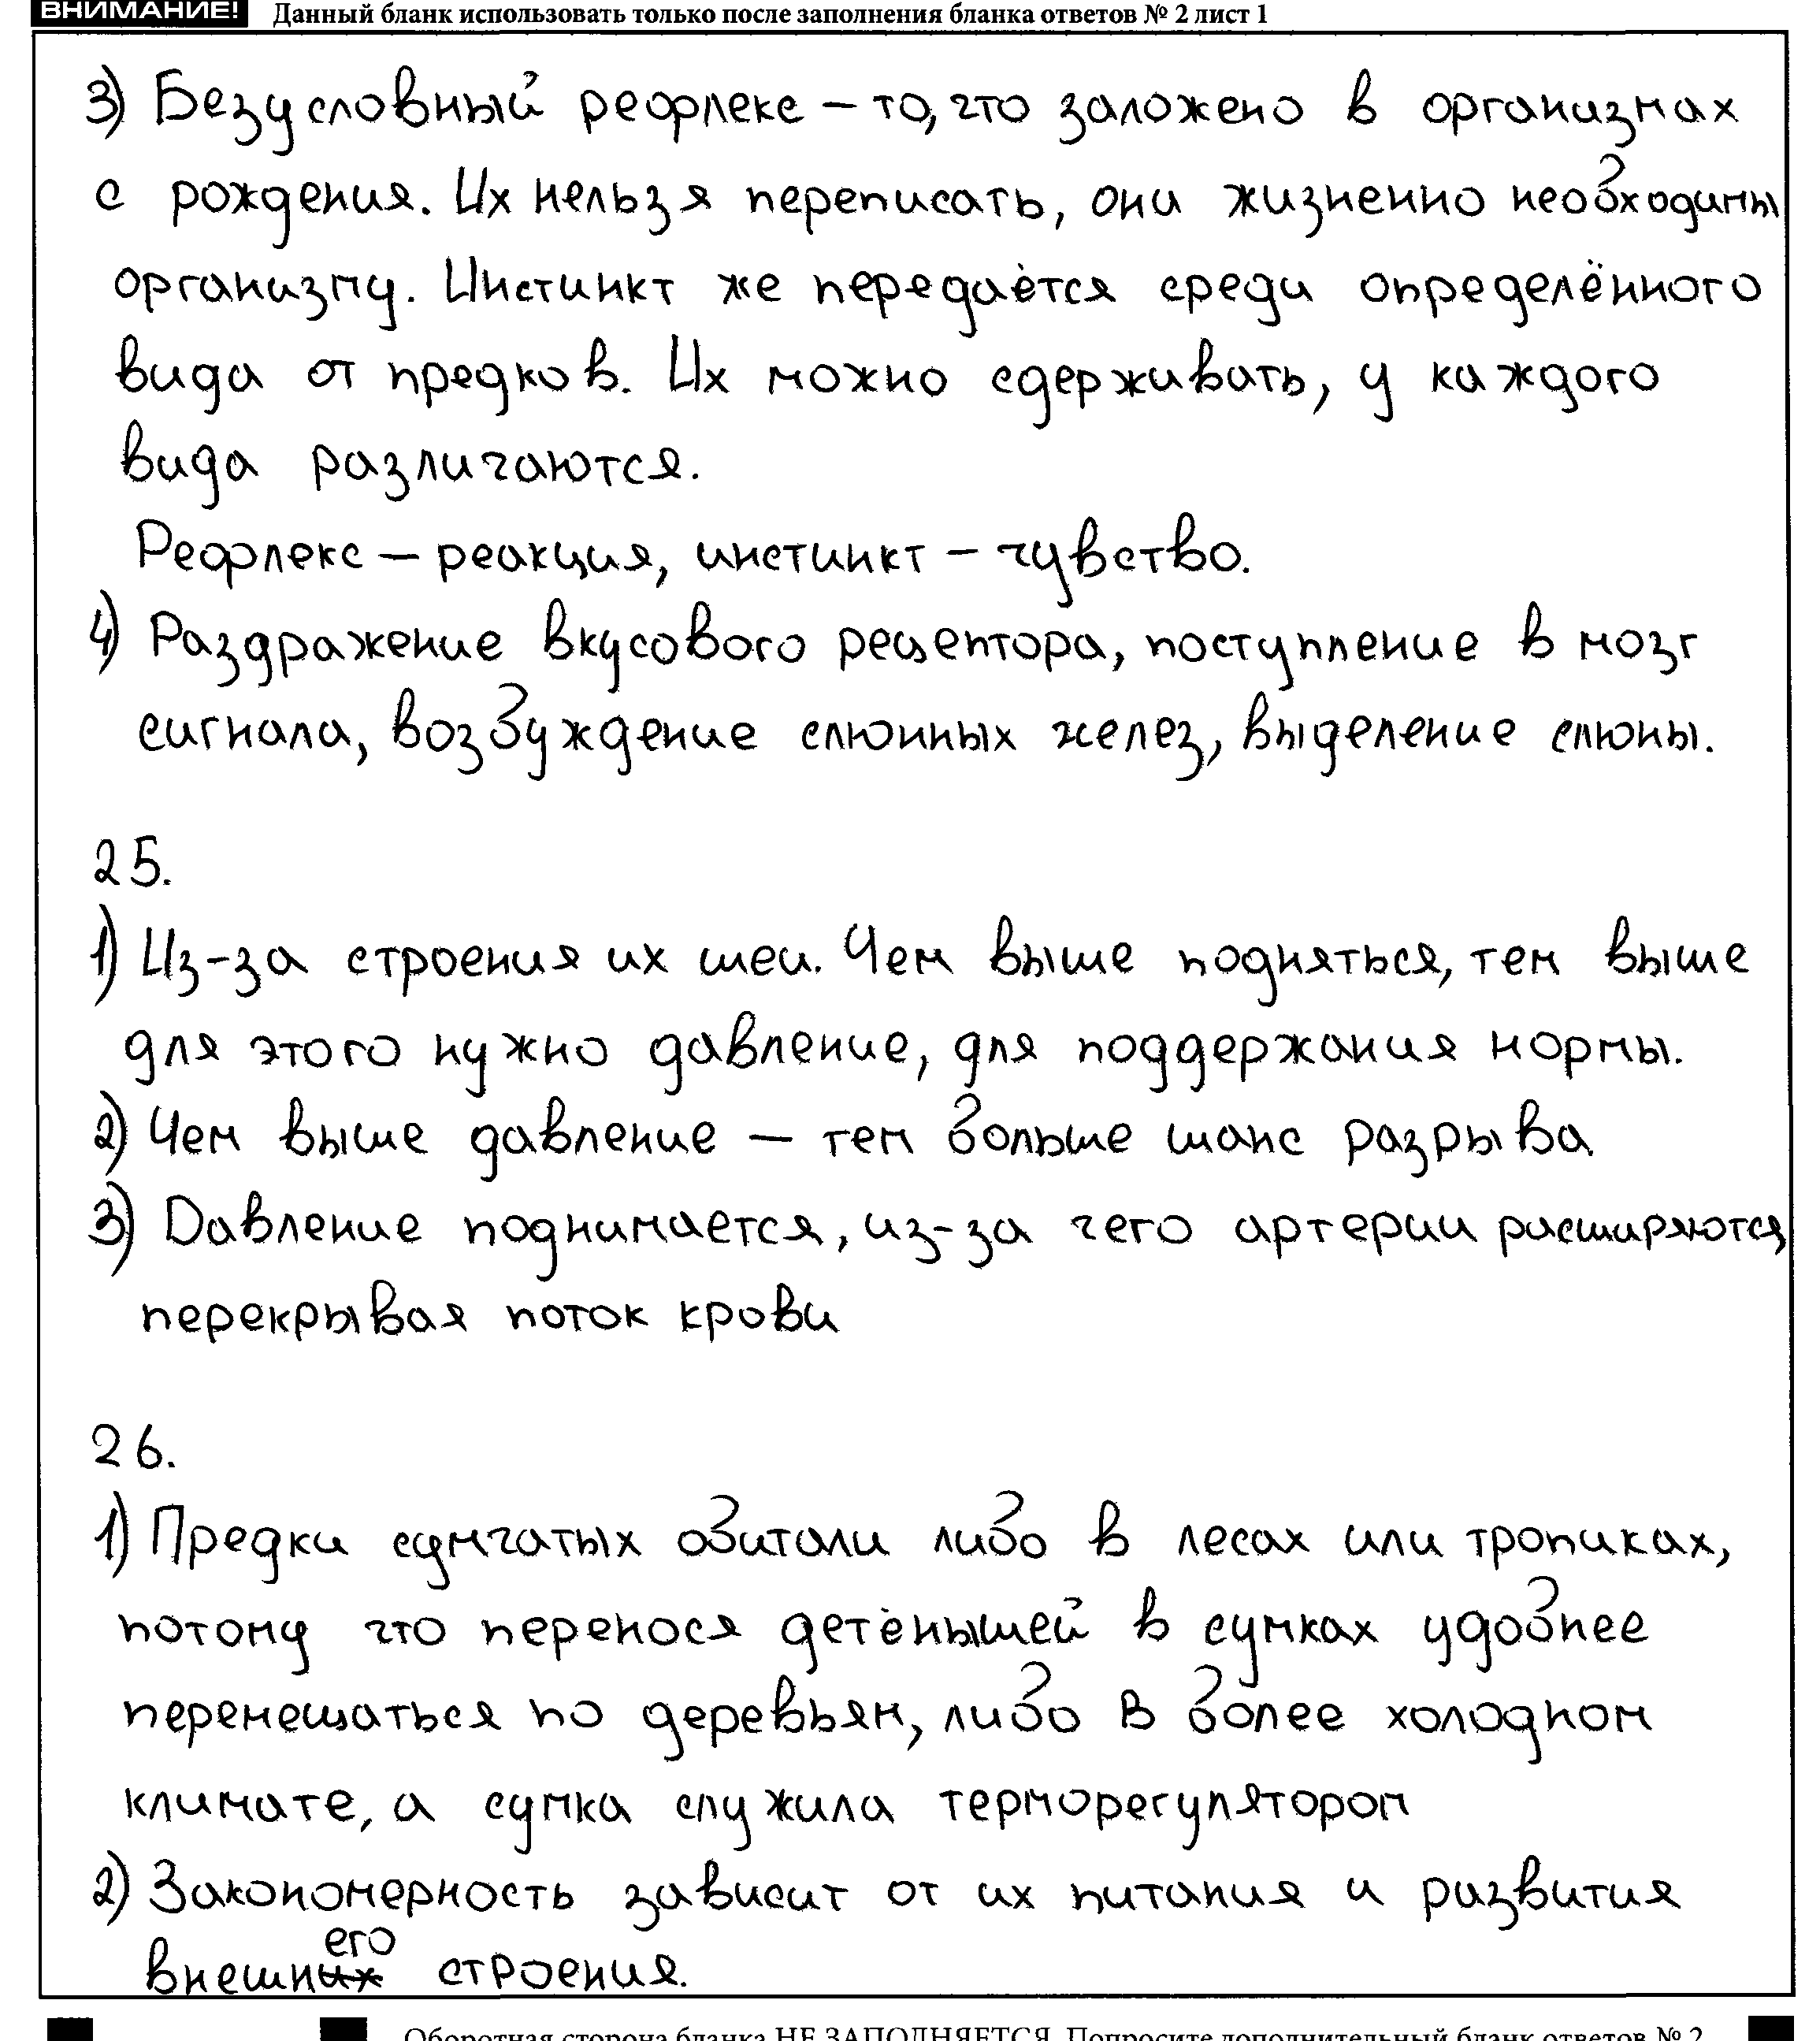 ВНИМАНИЕ! Данный бланк использовать только после заполнения бланка ответов № 2 лист 1
3) Безусловный рефлекс – то, что заложено в организмах
с рождения. Их нельзя переписать, они жизненно необходимы
организму. Инстинкт же передаётся среди определённого
вида от предков. Их можно сдерживать, у каждого
вида различаются.
Рефлекс – реакция, инстинкт – чувство.
4) Раздражение вкусового рецептора, поступление в мозг
сигнала, возбуждение слюнных желез, выделение слюны.
25.
1) Из-за строения их шеи. Чем выше подняться, тем выше
для этого нужно давление, для поддержания нормы.
2) Чем выше давление – тем больше шанс разрыва
3) Давление поднимается, из-за чего артерии расширяются,
перекрывая поток крови
26.
1) Предки сумчатых обитали либо в лесах или тропиках,
потому что перенося детёнышей в сумках удобнее
перемещаться по деревьям, либо в более холодном
климате, а сумка служила терморегулятором
2) Закономерность зависит от их питания и развития
внешнего строения.
Оборотная сторона бланка НЕ ЗАПОЛНЯЕТСЯ. Попросите дополнительный бланк ответов № 2